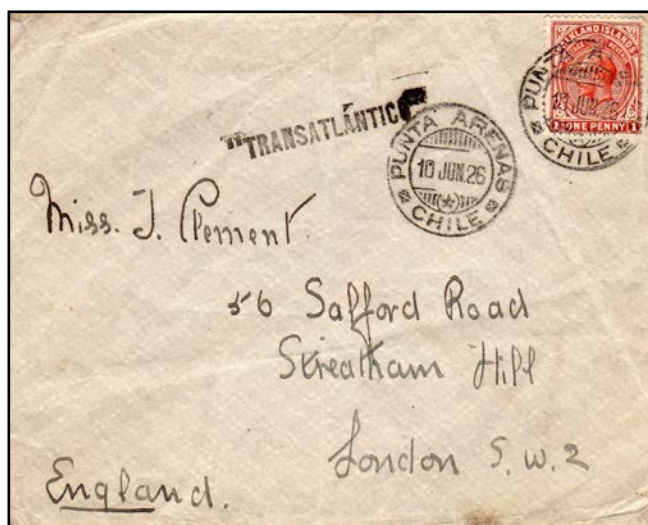 FALKLAND ISLANDS
ONE PENNY
PUNTA ARENAS
10 JUN. 26
CHILE
"TRANSATLÁNTICO"
PUNTA ARENAS
10 JUN. 26
CHILE
Miss. J. Clement.
56 Salford Road
Streatham Hill
London S. W. 2
England.